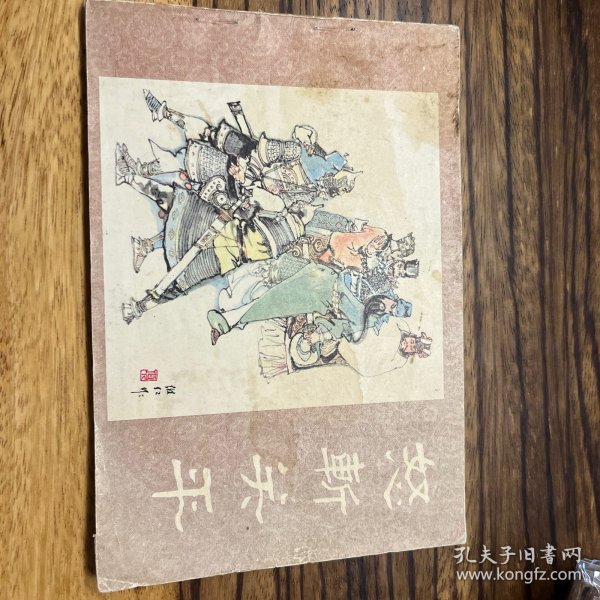 怒斩关平
孔夫子旧書网
www.kongfz.com